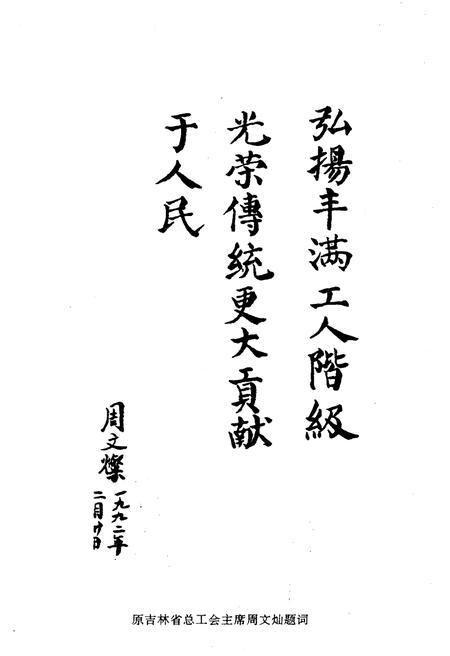 弘揚丰满工人階級
光荣傳統更大貢献
于人民
周文燦
一九九二年
二月廿日
原吉林省总工会主席周文灿题词